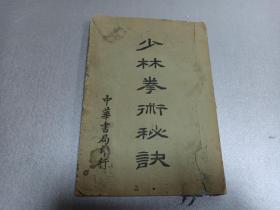 少林拳術秘訣
中華書局印行